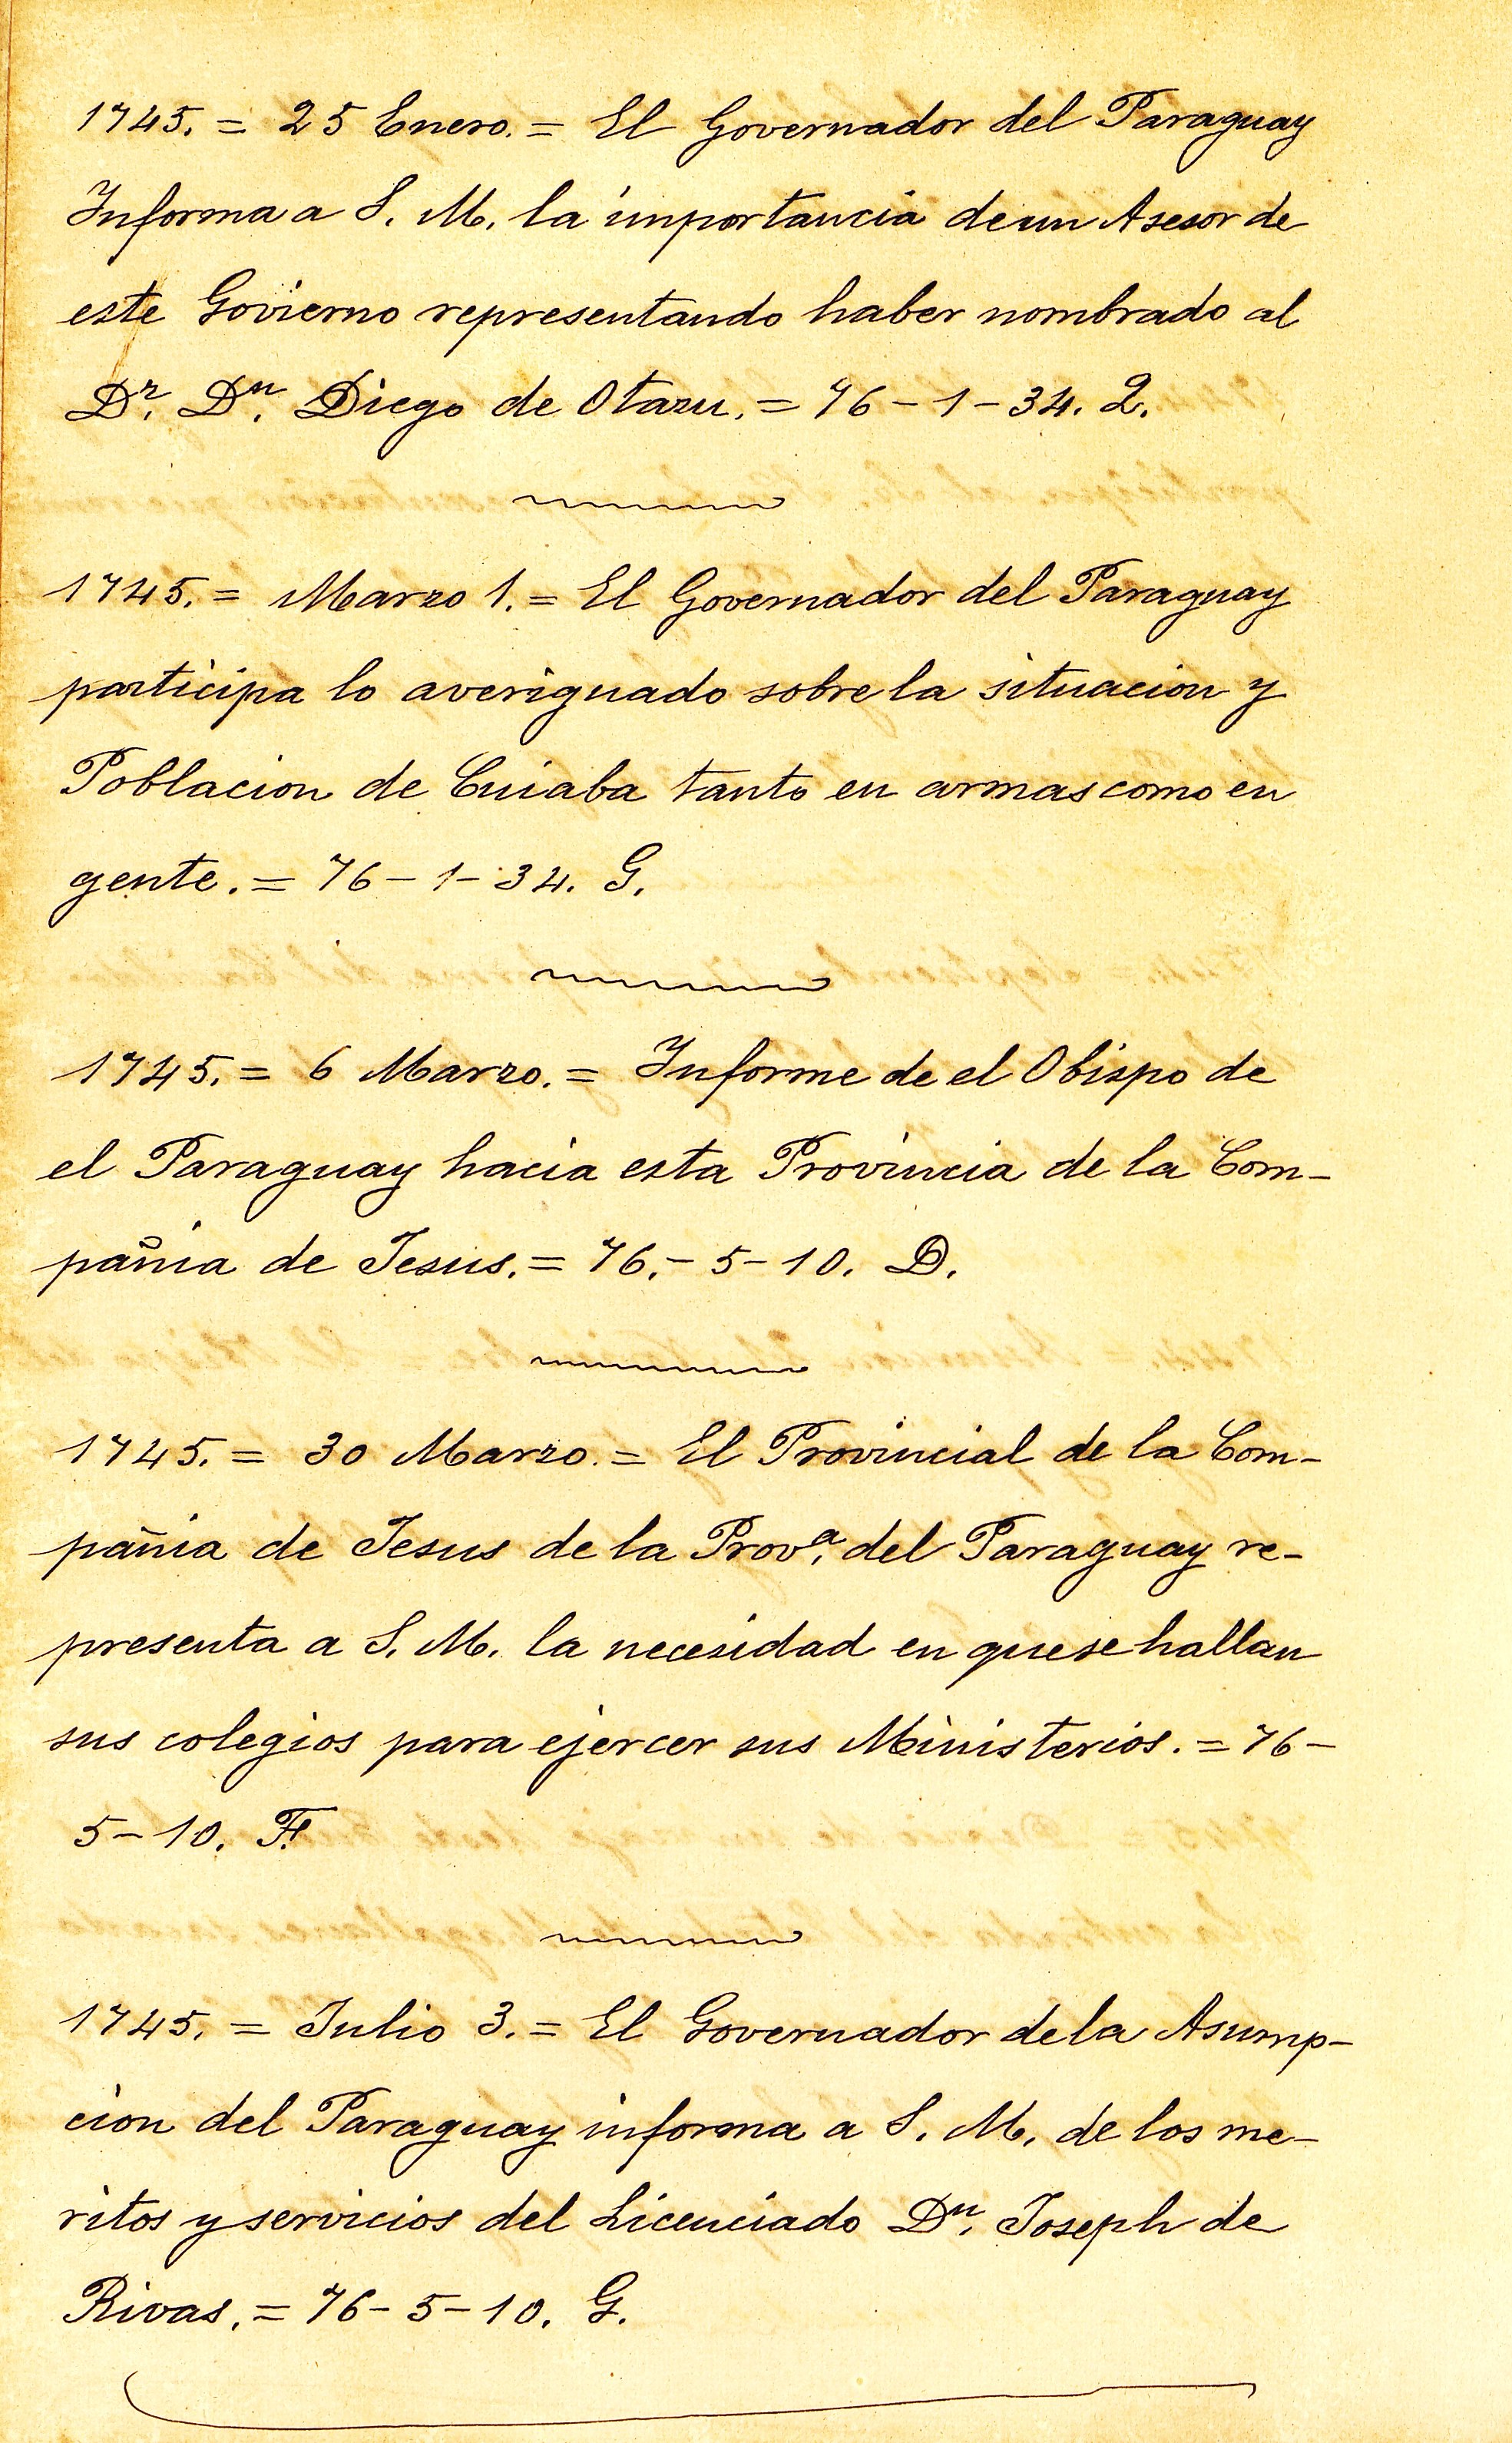 1745. = 25 Enero. = El Governador del Paraguay
Informa a S. M. la importancia de un Asesor de
este Govierno representando haber nombrado al
Dr. Dn. Diego de Otazu. = 76 - 1 - 34. 2.
1745. = Marzo 1. = El Governador del Paraguay
participa lo averiguado sobre la situacion y
Poblacion de Cuiaba tanto en armas como en
gente. = 76 - 1 - 34. G.
1745. = 6 Marzo. = Informe de el Obispo de
el Paraguay hacia esta Provincia de la Com-
pañia de Jesus. = 76. - 5 - 10. D.
1745. = 30 Marzo. = El Provincial de la Com-
pañia de Jesus de la Prova. del Paraguay re-
presenta a S. M. la necesidad en que se hallan
sus colegios para ejercer sus Ministerios. = 76 -
5 - 10. F.
1745. = Julio 3. = El Governador de la Asump-
cion del Paraguay informa a S. M. de los me-
ritos y servicios del Licenciado Dn. Joseph de
Rivas. = 76 - 5 - 10. G.